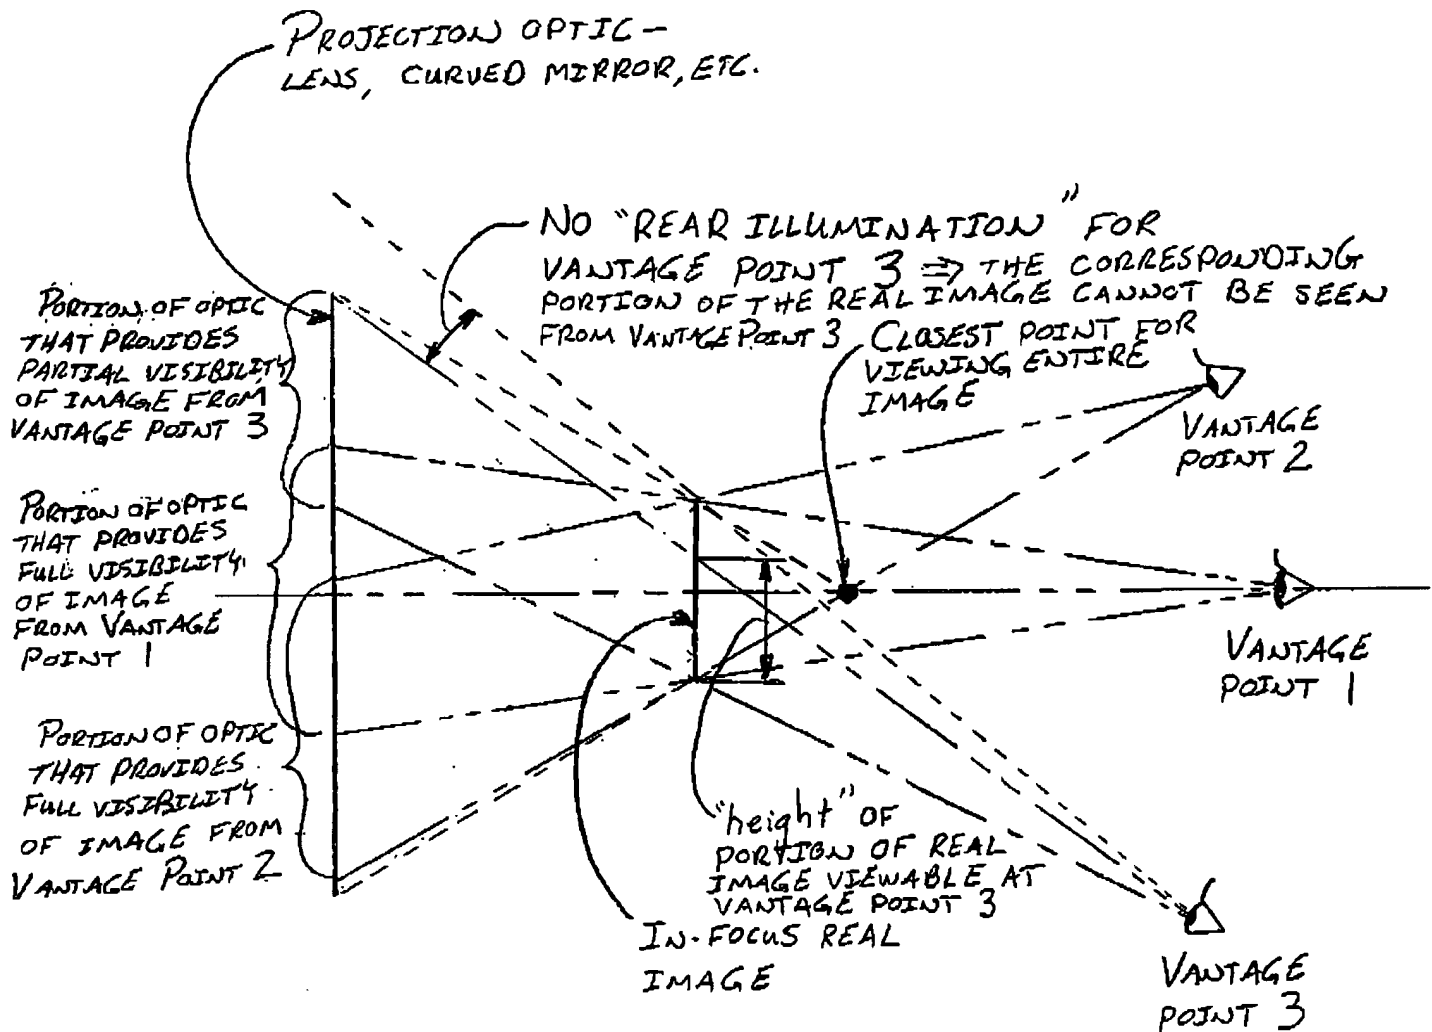 PROJECTION OPTIC -
LENS, CURVED MIRROR, ETC.
NO "REAR ILLUMINATION" FOR
VANTAGE POINT 3 ⇒ THE CORRESPONDING
PORTION OF THE REAL IMAGE CANNOT BE SEEN
FROM VANTAGE POINT 3
CLOSEST POINT FOR
VIEWING ENTIRE
IMAGE
PORTION OF OPTIC
THAT PROVIDES
PARTIAL VISIBILITY
OF IMAGE FROM
VANTAGE POINT 3
VANTAGE
POINT 2
PORTION OF OPTIC
THAT PROVIDES
FULL VISIBILITY
OF IMAGE
FROM VANTAGE
POINT 1
VANTAGE
POINT 1
PORTION OF OPTIC
THAT PROVIDES
FULL VISIBILITY
OF IMAGE FROM
VANTAGE POINT 2
"height" OF
PORTION OF REAL
IMAGE VIEWABLE AT
VANTAGE POINT 3
IN-FOCUS REAL
IMAGE
VANTAGE
POINT 3